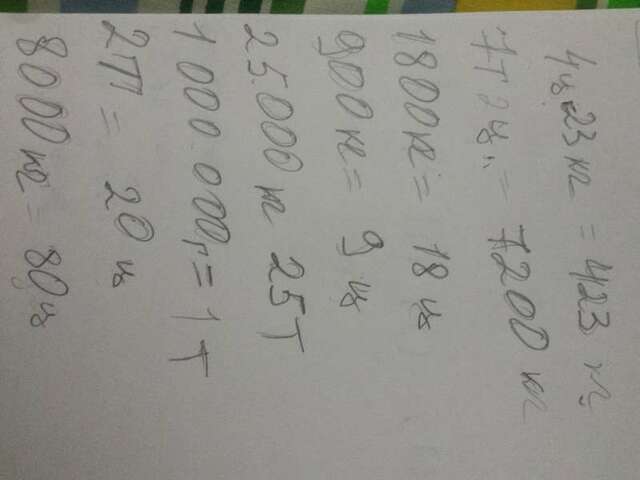 4ц 23 кг = 423 кг
7т 2 ц. = 7200 кг
1800 кг = 18 ц
900 кг = 9 ц
25.000 кг 25 т
1 000.000 г = 1 т
2т = 20 ц
8000 кг = 80 ц